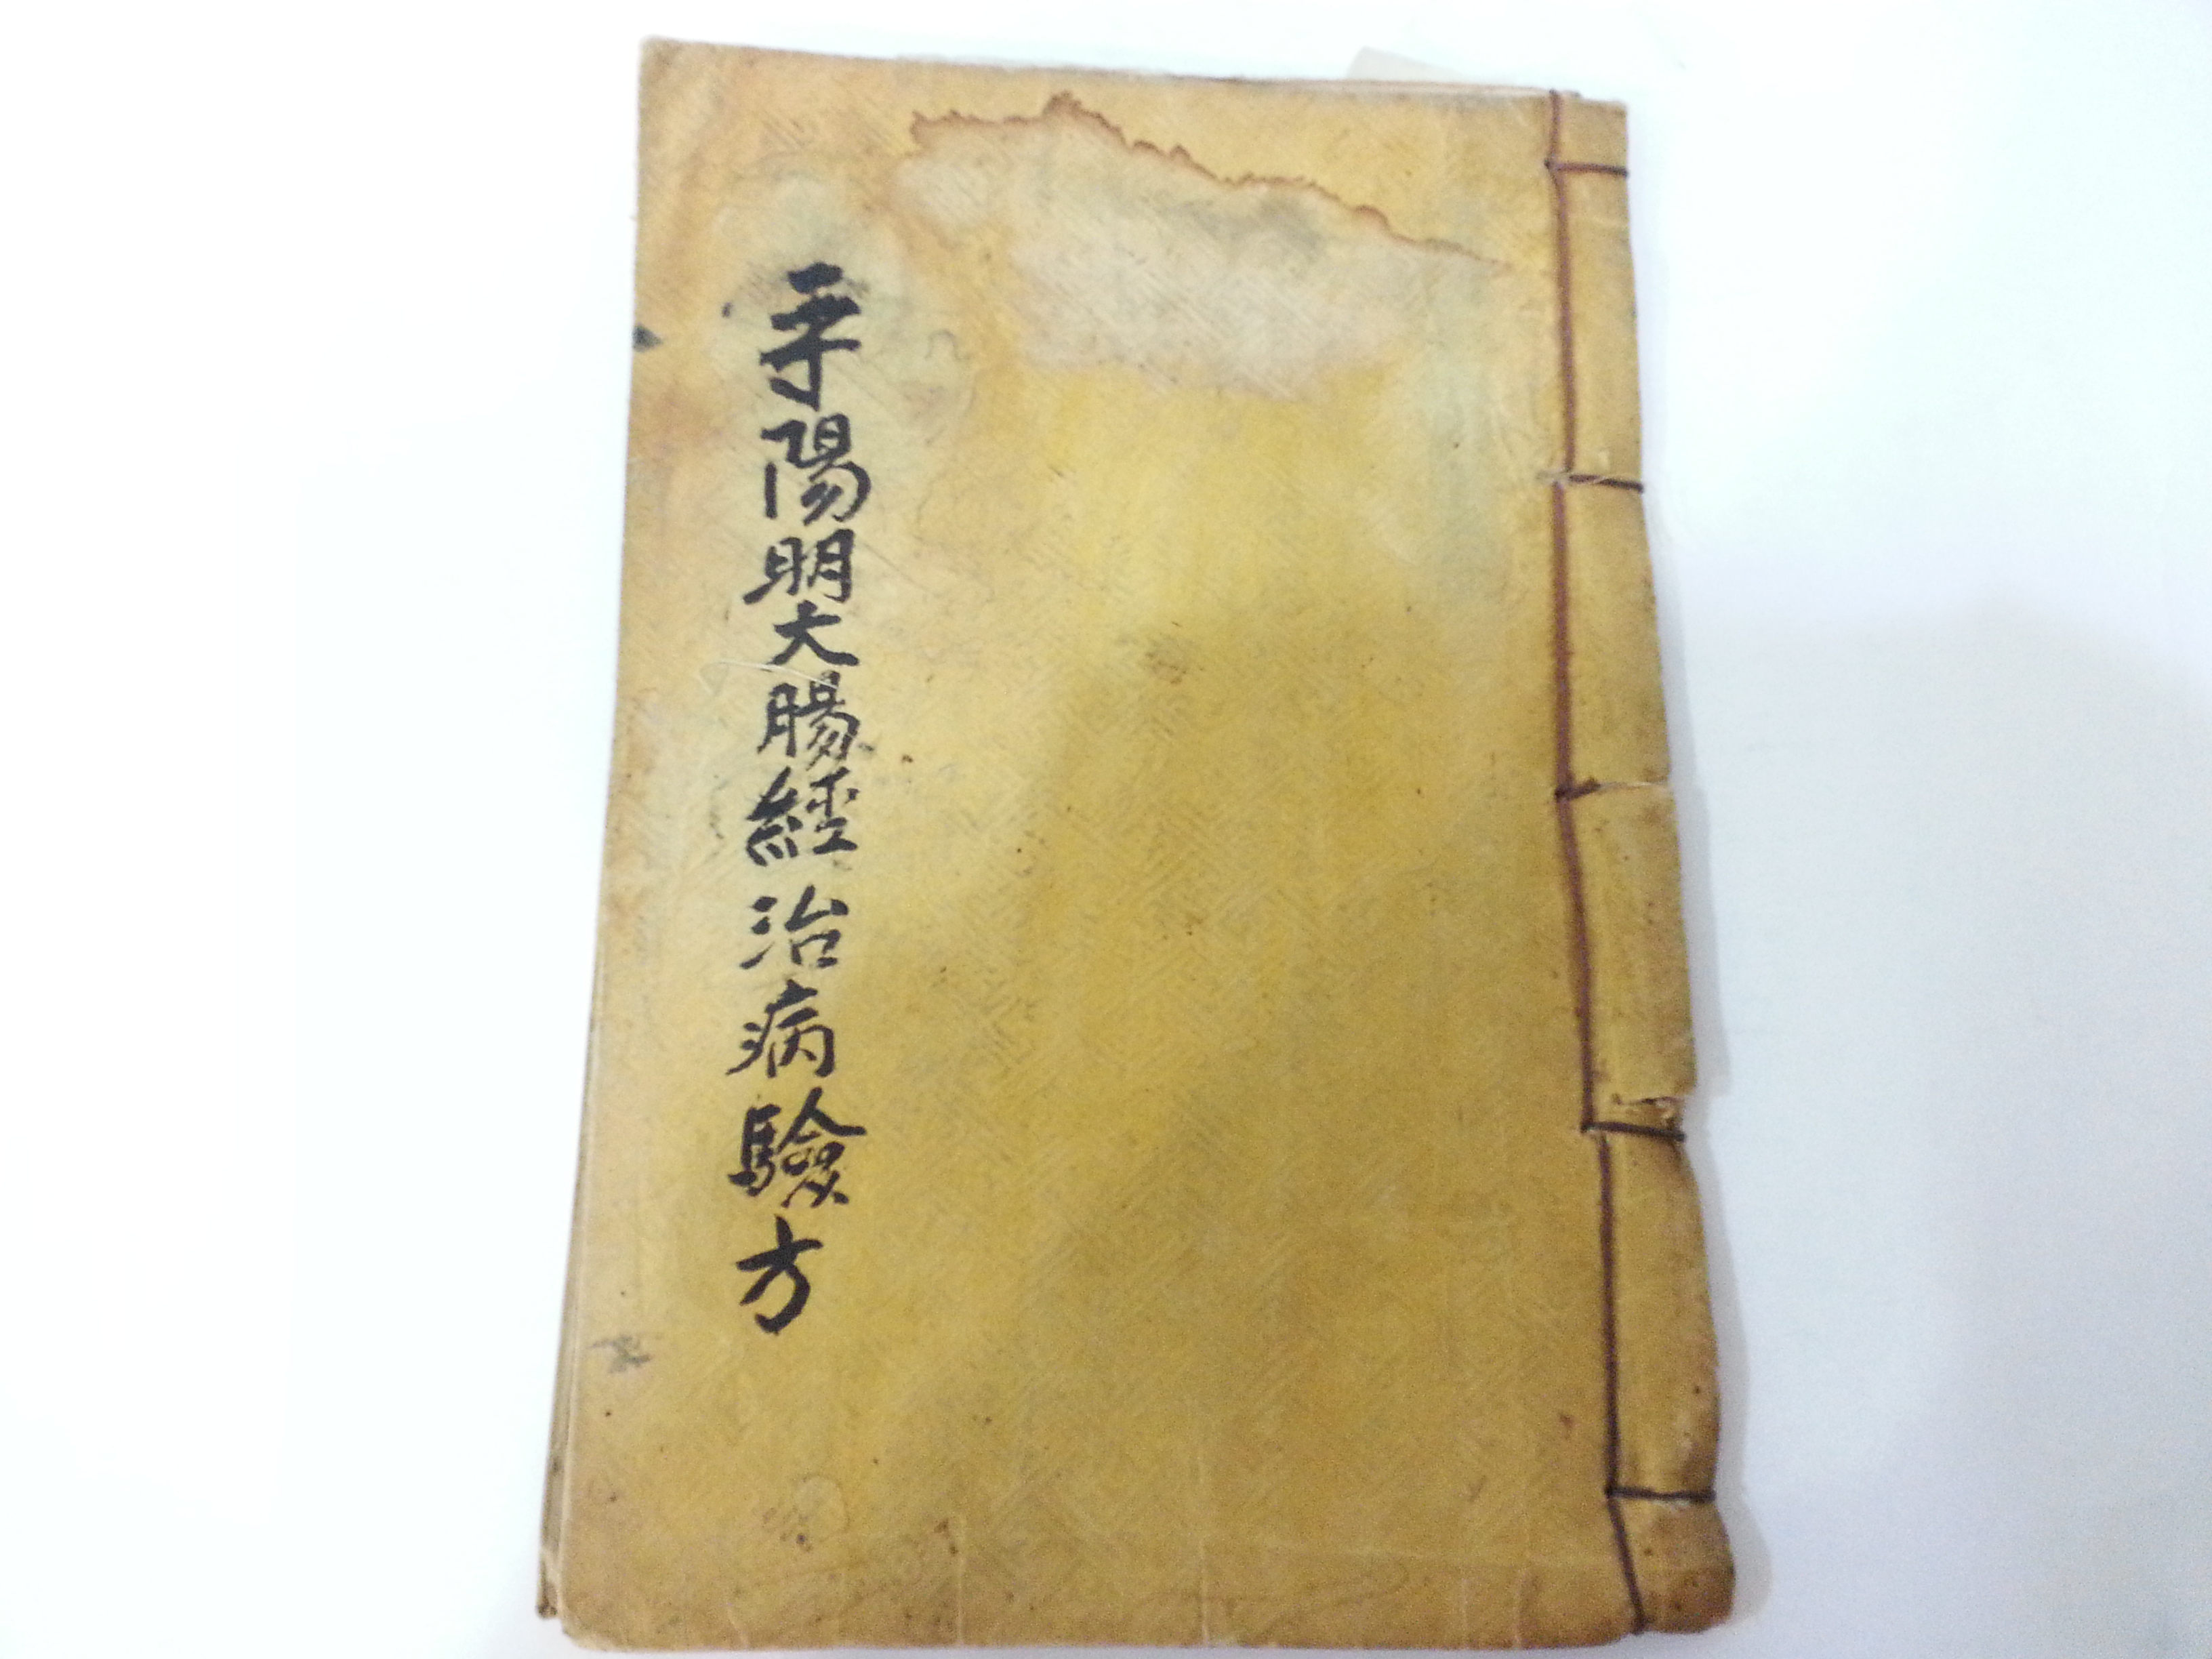 手陽明大腸經治病驗方